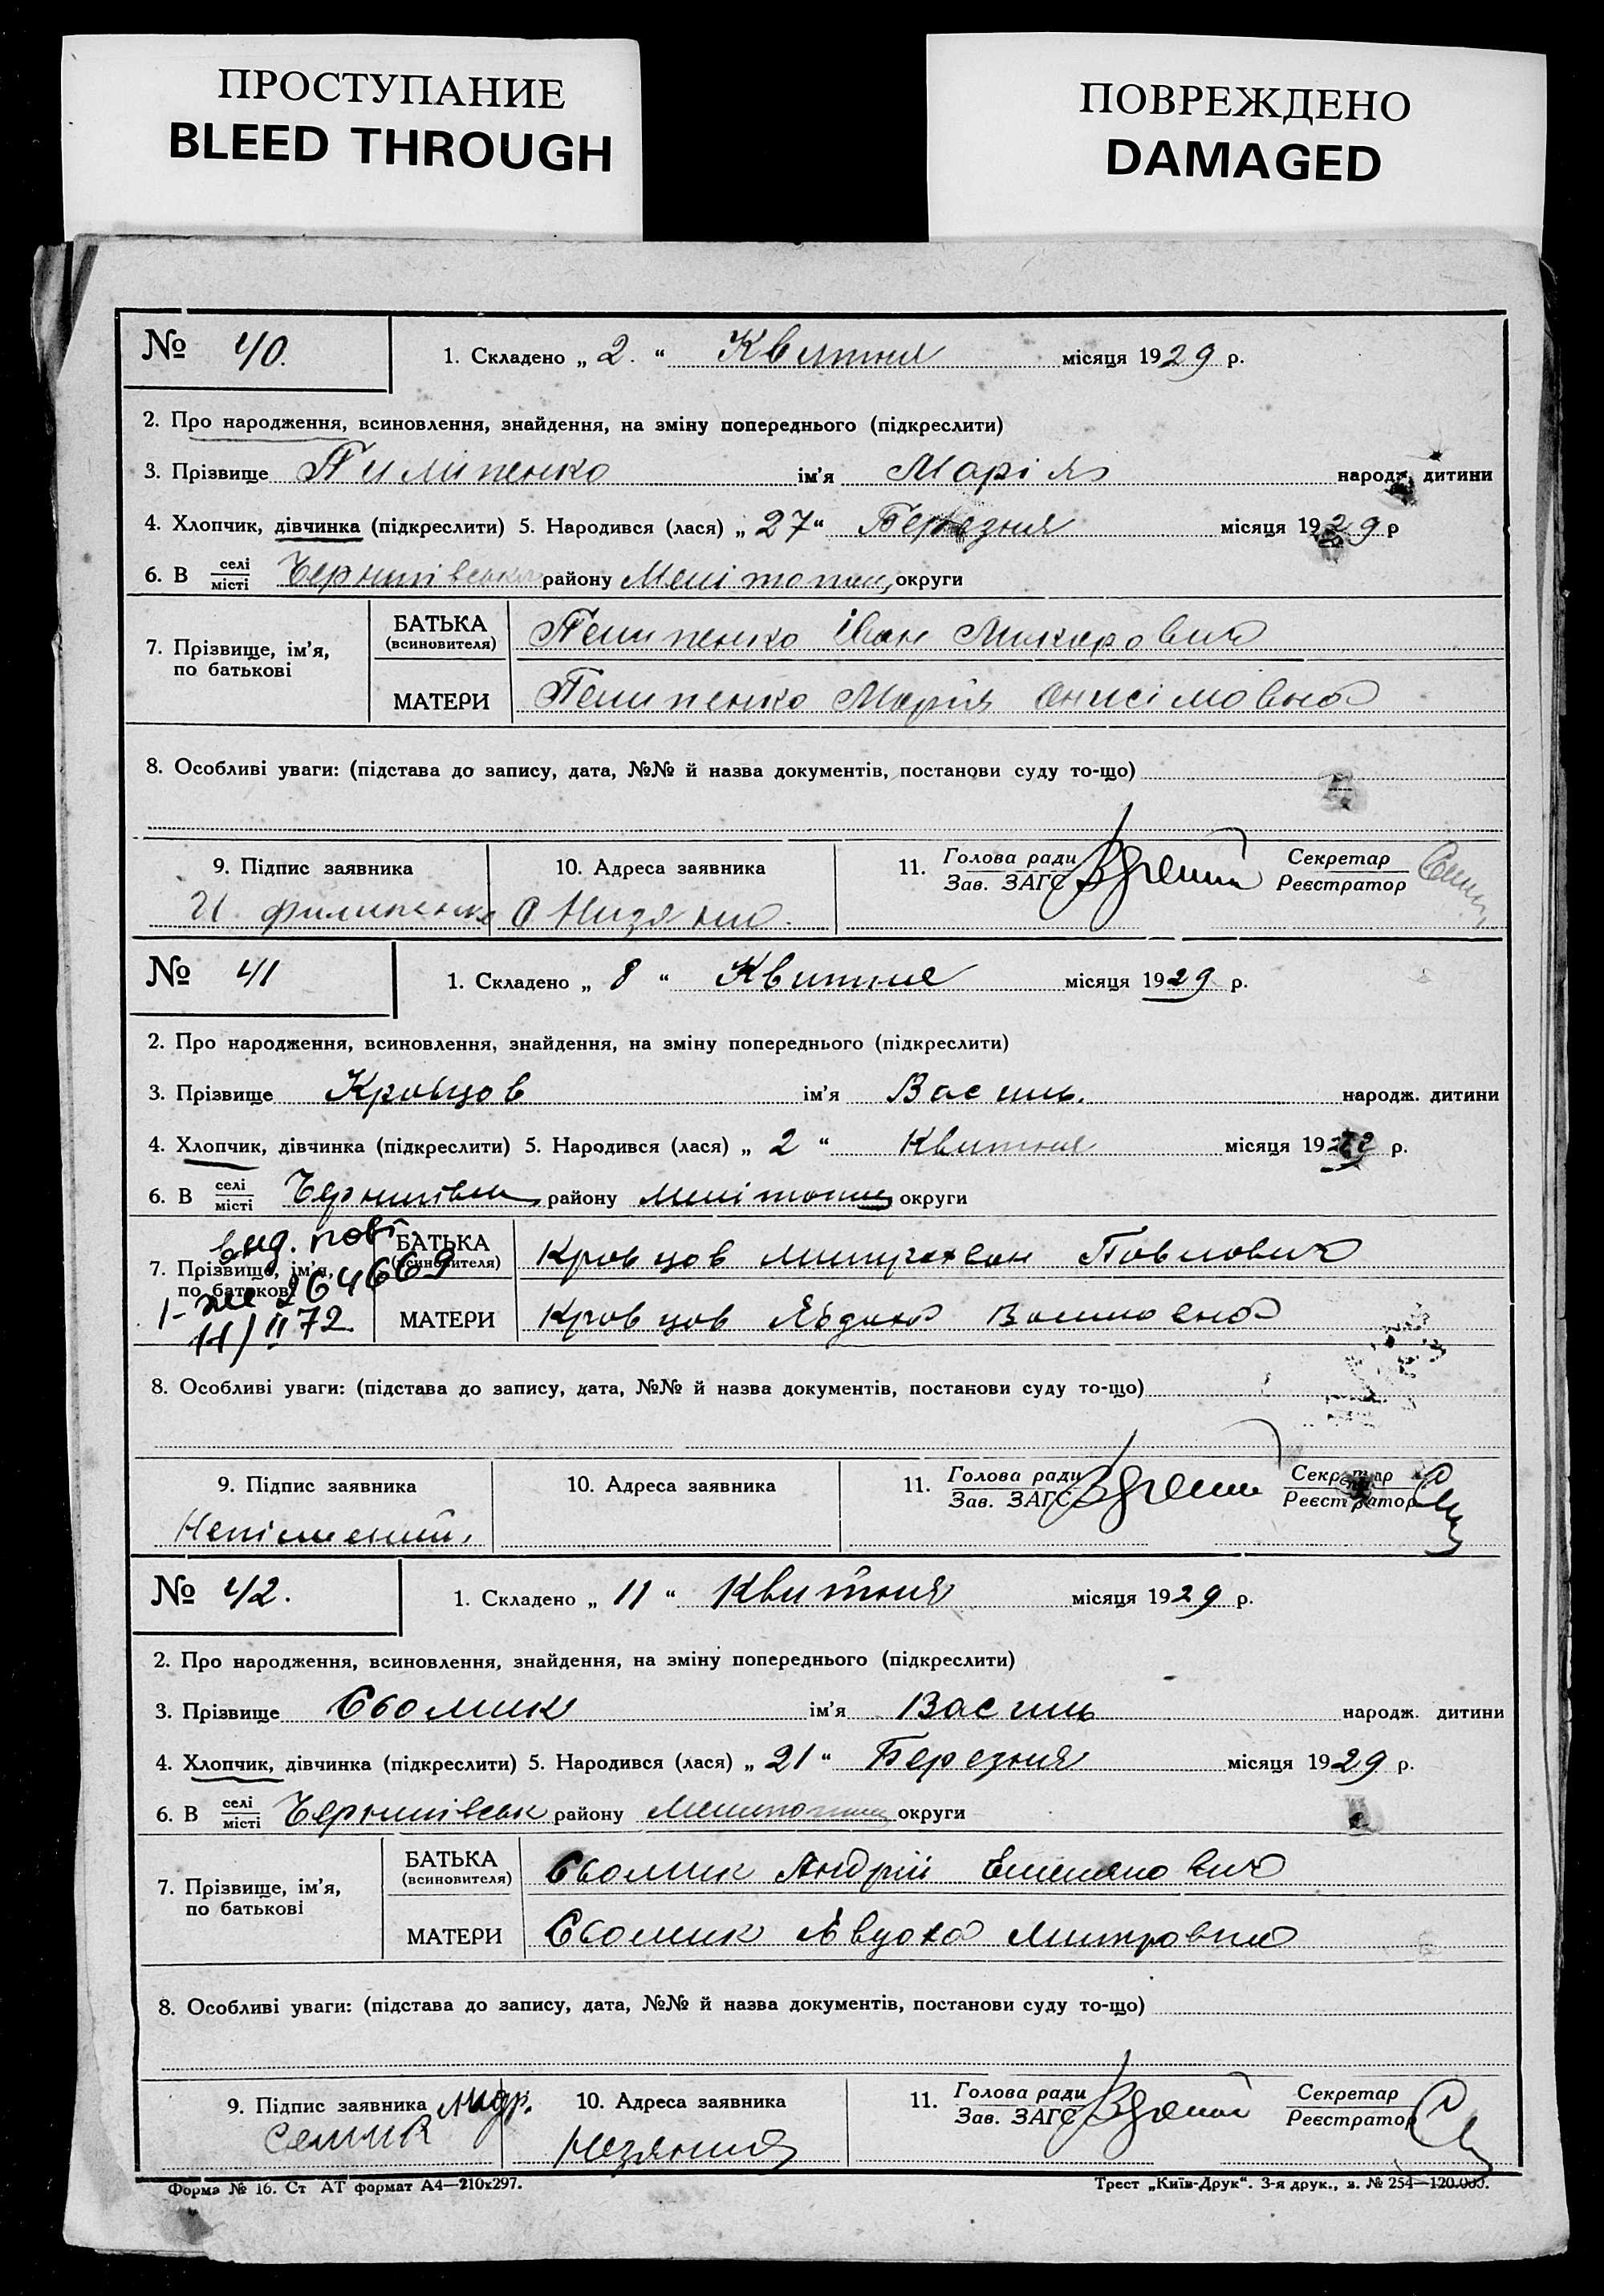 ПРОСТУПАНИЕ
BLEED THROUGH
ПОВРЕЖДЕНО
DAMAGED
№ 40. 1. Складено „ 2. “ Квитня місяця 1929 р.
2. Про народження, всиновлення, знайдення, на зміну попереднього (підкреслити)
3. Прізвище Пилипенко ім’я Марія народж. дитини
4. Хлопчик, дівчинка (підкреслити) 5. Народився (лася) „ 27 “ Березня місяця 1929 р
6. В селі місті району округи
7. Прізвище, ім’я, по батькові
БАТЬКА (всиновителя) Пилипенко Іван Макарович
МАТЕРИ Пилипенко Марія Онисімовна
8. Особливі уваги: (підстава до запису, дата, №№ й назва документів, постанови суду то-що)
9. Підпис заявника 10. Адреса заявника 11. Голова ради Зав. ЗАГС Секретар Реєстратор
И. Филипенко
№ 41 1. Складено „ 8 “ Квитня місяця 1929 р.
2. Про народження, всиновлення, знайдення, на зміну попереднього (підкреслити)
3. Прізвище Кровцов ім’я Василь. народж. дитини
4. Хлопчик, дівчинка (підкреслити) 5. Народився (лася) „ 2 “ Квитня місяця 19 р.
6. В селі місті району округи
вид. повт
7. Прізвище, ім’я, по батькові
264669
11/II 72
БАТЬКА (всиновителя) Кровцов Павлович
МАТЕРИ Кровцов Явдоха
8. Особливі уваги: (підстава до запису, дата, №№ й назва документів, постанови суду то-що)
9. Підпис заявника 10. Адреса заявника 11. Голова ради Зав. ЗАГС Секретар Реєстратор
№ 42. 1. Складено „ 11 “ Квитня місяця 1929 р.
2. Про народження, всиновлення, знайдення, на зміну попереднього (підкреслити)
3. Прізвище ім’я Василь народж. дитини
4. Хлопчик, дівчинка (підкреслити) 5. Народився (лася) „ 21 “ Березня місяця 1929 р.
6. В селі місті Чернигівськ району округи
7. Прізвище, ім’я, по батькові
БАТЬКА (всиновителя) Андрій Емелянович
МАТЕРИ Явдоха Митровна
8. Особливі уваги: (підстава до запису, дата, №№ й назва документів, постанови суду то-що)
9. Підпис заявника Андр. 10. Адреса заявника 11. Голова ради Зав. ЗАГС Секретар Реєстратор
Семик
Форма № 16. Ст АТ формат А4—210х297. Трест „Київ-Друк“. 3-я друк., з. № 254—120.000.